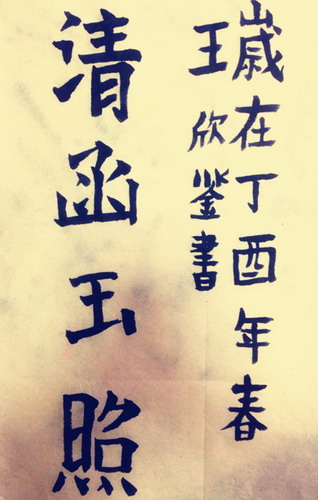 嵗在丁酉年春
王欣鉴書
清函玉照